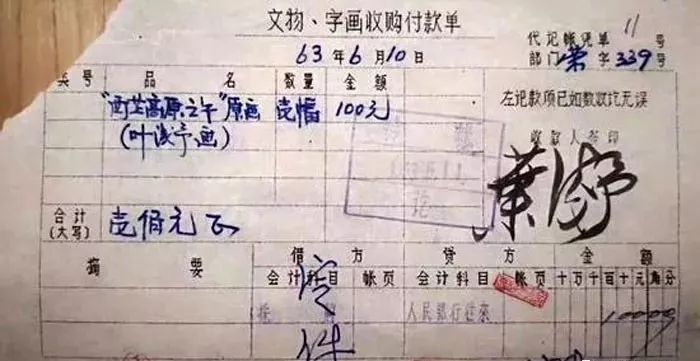 文物、字画收购付款单
63年6月10日
代记帐凭单 11号
部门荣字339号
类号 品名 数量 金额
"西芷高原之午"原画 壹幅 100元
(叶浅予画)
左记款项已如数收讫无误
收款人签印
葉浅予
合计(大写) 壹佰元正
摘要 借方 贷方 金额
会计科目 帐页 会计科目 帐页 十万千百十元角分
人民银行往来 10000